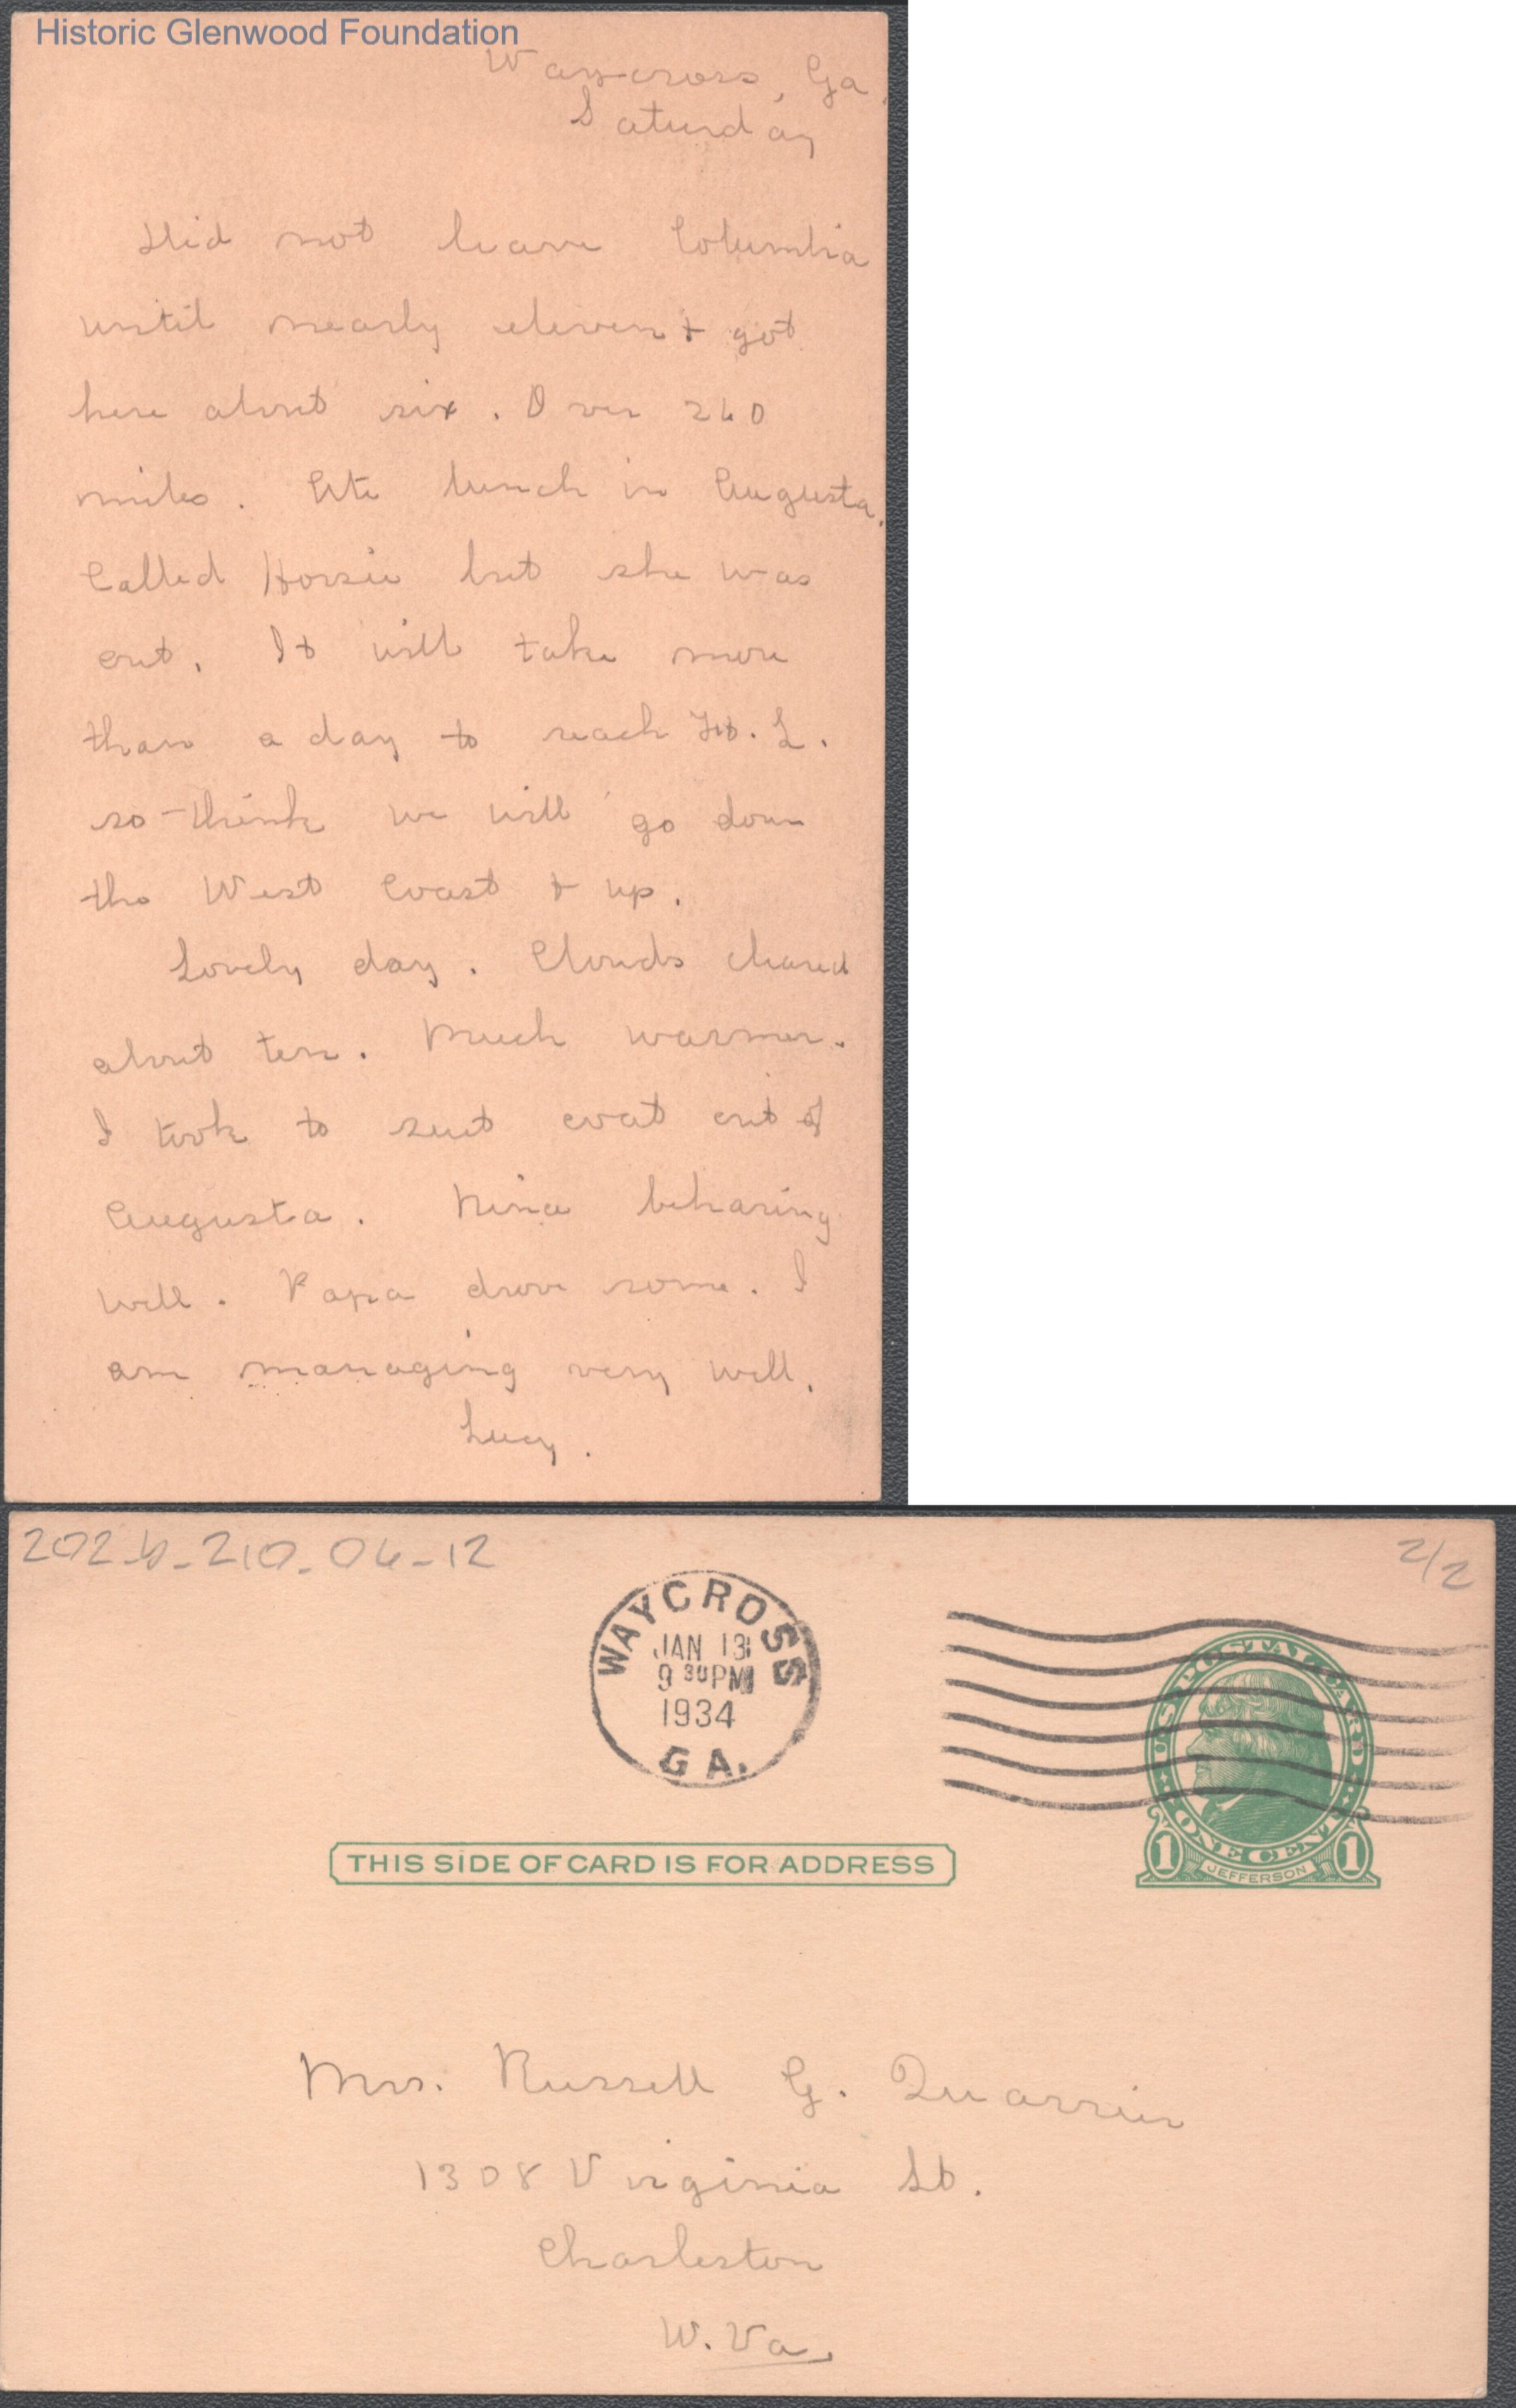 Historic Glenwood Foundation
Waycross, Ga.
Saturday
Did not leave Columbia
until nearly eleven & got
here about six. Over 260
miles. Ate lunch in Augusta.
Called Horsie but she was
out. It will take more
than a day to reach Ft. L.
so think we will go down
the West Coast & up.
Lovely day. Clouds cleared
about ten. Much warmer.
I took to suit coat out of
Augusta. Nina behaving
well. Papa drove some. I
am managing very well.
Lucy.
202-b-210-06-12
2/2
WAYCROSS
JAN 13
9 30 PM
1934
GA.
U.S. POSTAL CARD
ONE CENT
1 JEFFERSON 1
THIS SIDE OF CARD IS FOR ADDRESS
Mrs. Russell G. Quarrier
1308 Virginia St.
Charleston
W. Va.